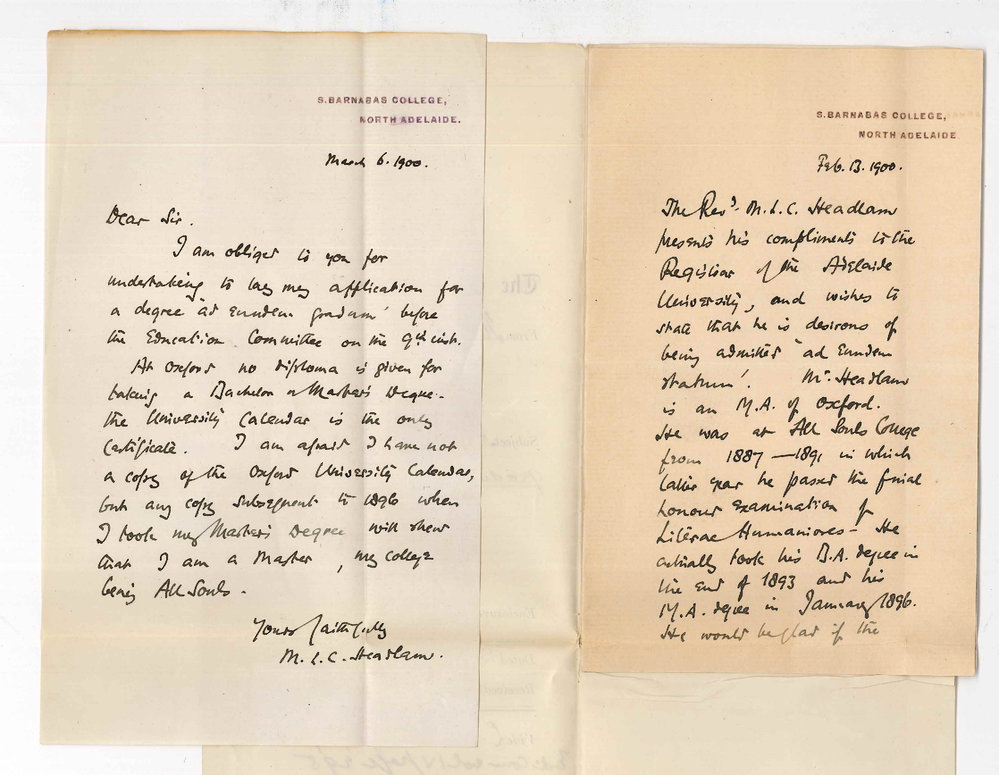 S. BARNABAS COLLEGE,
NORTH ADELAIDE.
March 6. 1900.
Dear Sir.
I am obliged to you for
undertaking to lay my application for
a degree "ad eundem gradum" before
the Education Committee on the 9th inst.
At Oxford no diploma is given for
taking a Bachelor or Master's Degree.
the University Calendar is the only
Certificate. I am afraid I have not
a copy of the Oxford University Calendar,
but any copy subsequent to 1896 when
I took my Master's Degree will shew
that I am a Master, my college
being All Souls.
Yours faithfully
M. L. C. Headlam.
S. BARNABAS COLLEGE,
NORTH ADELAIDE
Feb. 13. 1900.
The Revd. M. L. C. Headlam
presents his compliments to the
Registrar of the Adelaide
University, and wishes to
state that he is desirous of
being admitted "ad Eundem
statum". Mr. Headlam
is an M.A. of Oxford.
He was at All Souls College
from 1887—1891 in which
latter year he passed the final
honour Examination of
Literae Humaniores - He
actually took his B.A. degree in
the end of 1893 and his
M.A. degree in January 1896.
He would be glad if the
The